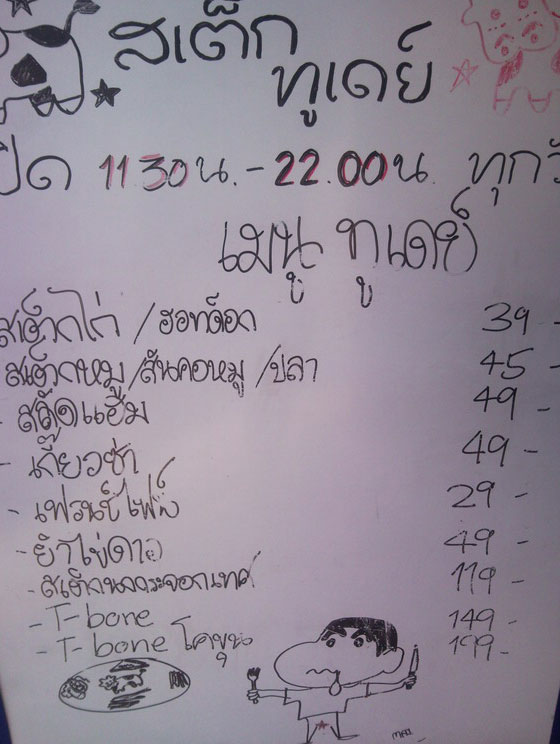 สเต็ก
ทูเดย์
เปิด 11 30 น. - 22.00 น. ทุกวัน
เมนู ทูเดย์
สเต็กไก่ / ฮอทด็อก 39 -
สเต็กหมู / สันคอหมู / ปลา 45 -
- สลัดแฮม 49 -
- เกี๊ยวซ่า 49 -
- เฟรนช์ไฟส์ 29 -
- ยำไข่ดาว 49 -
- สเต็กนกกระจอกเทศ 119 -
- T-bone 149 -
- T-bone โคขุน 199 -